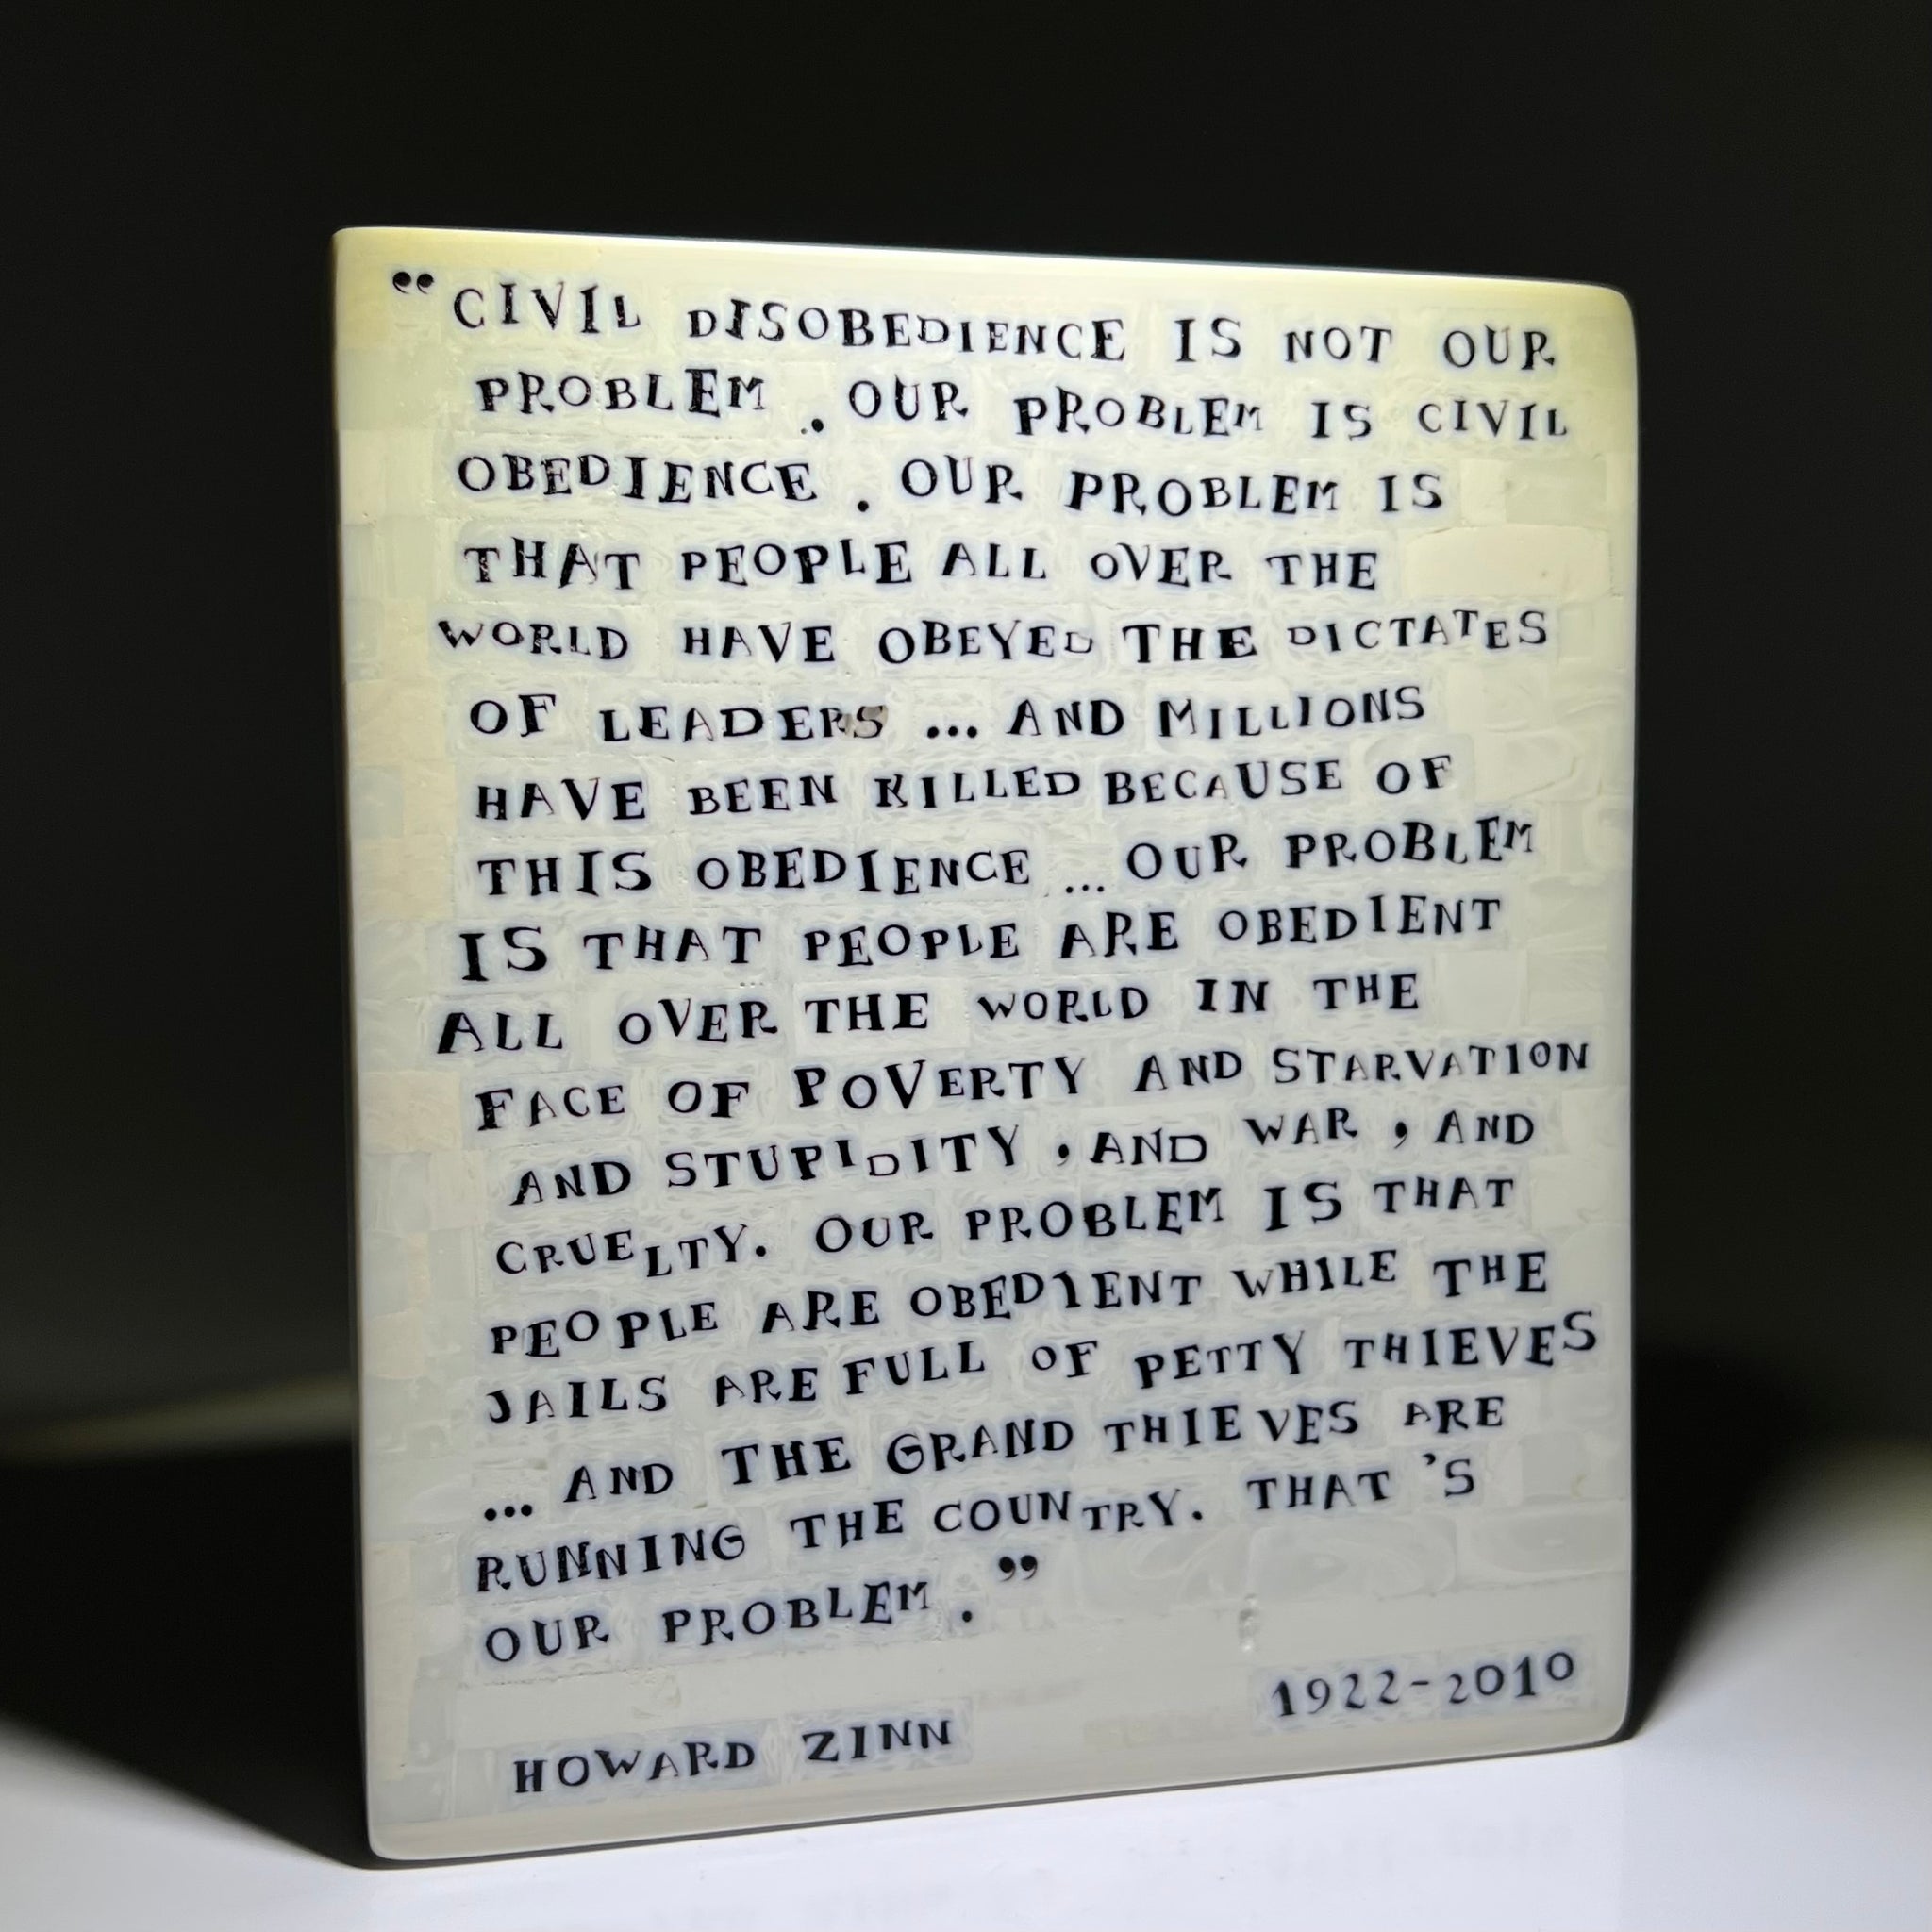 “CIVIL DISOBEDIENCE IS NOT OUR
PROBLEM. OUR PROBLEM IS CIVIL
OBEDIENCE. OUR PROBLEM IS
THAT PEOPLE ALL OVER THE
WORLD HAVE OBEYED THE DICTATES
OF LEADERS ... AND MILLIONS
HAVE BEEN KILLED BECAUSE OF
THIS OBEDIENCE ... OUR PROBLEM
IS THAT PEOPLE ARE OBEDIENT
ALL OVER THE WORLD IN THE
FACE OF POVERTY AND STARVATION
AND STUPIDITY, AND WAR, AND
CRUELTY. OUR PROBLEM IS THAT
PEOPLE ARE OBEDIENT WHILE THE
JAILS ARE FULL OF PETTY THIEVES
... AND THE GRAND THIEVES ARE
RUNNING THE COUNTRY. THAT'S
OUR PROBLEM.”
1922-2010
HOWARD ZINN